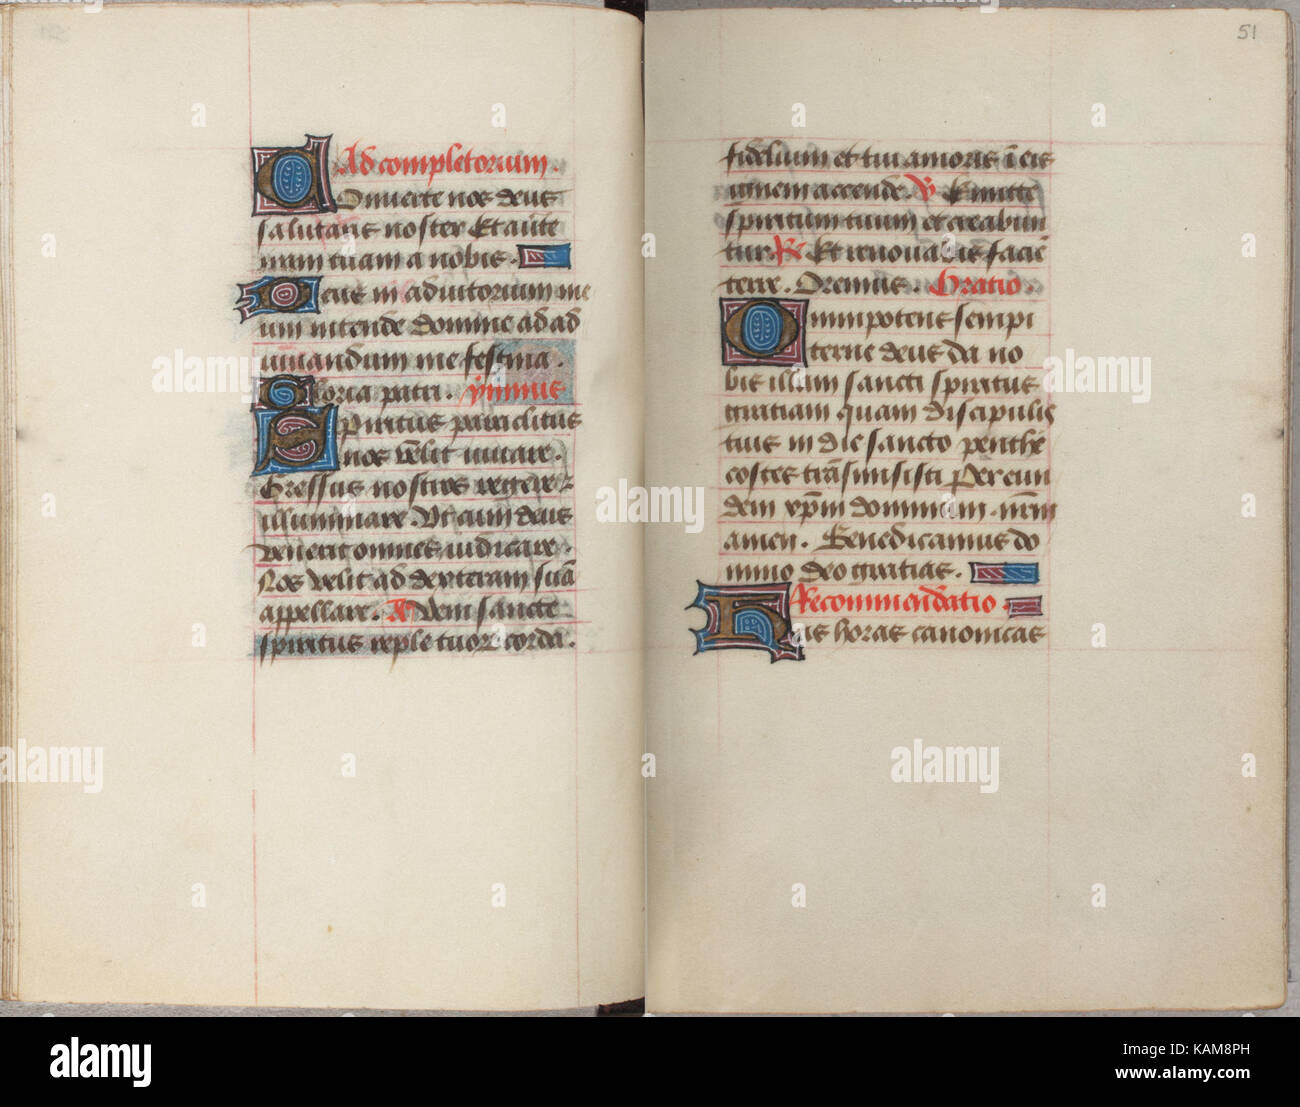 Ad completorium.
Converte nos deus
salutaris noster Et averte
iram tuam a nobis.
Deus in adiutorium me
um intende domine ad ad
iuvandum me festina.
Gloria patri. ymnus
Spiritus paraclitus
nos velit iuvare.
Gressus nostros regere et
illuminare. Ut cum deus
venerit omnes iudicare.
Nos velit ad dexteram suā
appellare. A Veni sancte
spiritus reple tuorum corda.
51
fidelium et tui amoris ī eis
ignem accende. V Emitte
spiritum tuum et creabun
tur. R Et renovabis faciē
terre. Oremus. Oratio.
Omnipotens sempi
terne deus da no
bis illam sancti spiritus
gratiam quam discipulis
tuis in die sancto penthe
costes trāsmisisti Per eun
dem xp̄m dominum nr̄m
amen. Benedicamus do
mino deo gratias.
Recommendatio.
Has horas canonicas
alamy
Image ID: KAM8PH
www.alamy.com